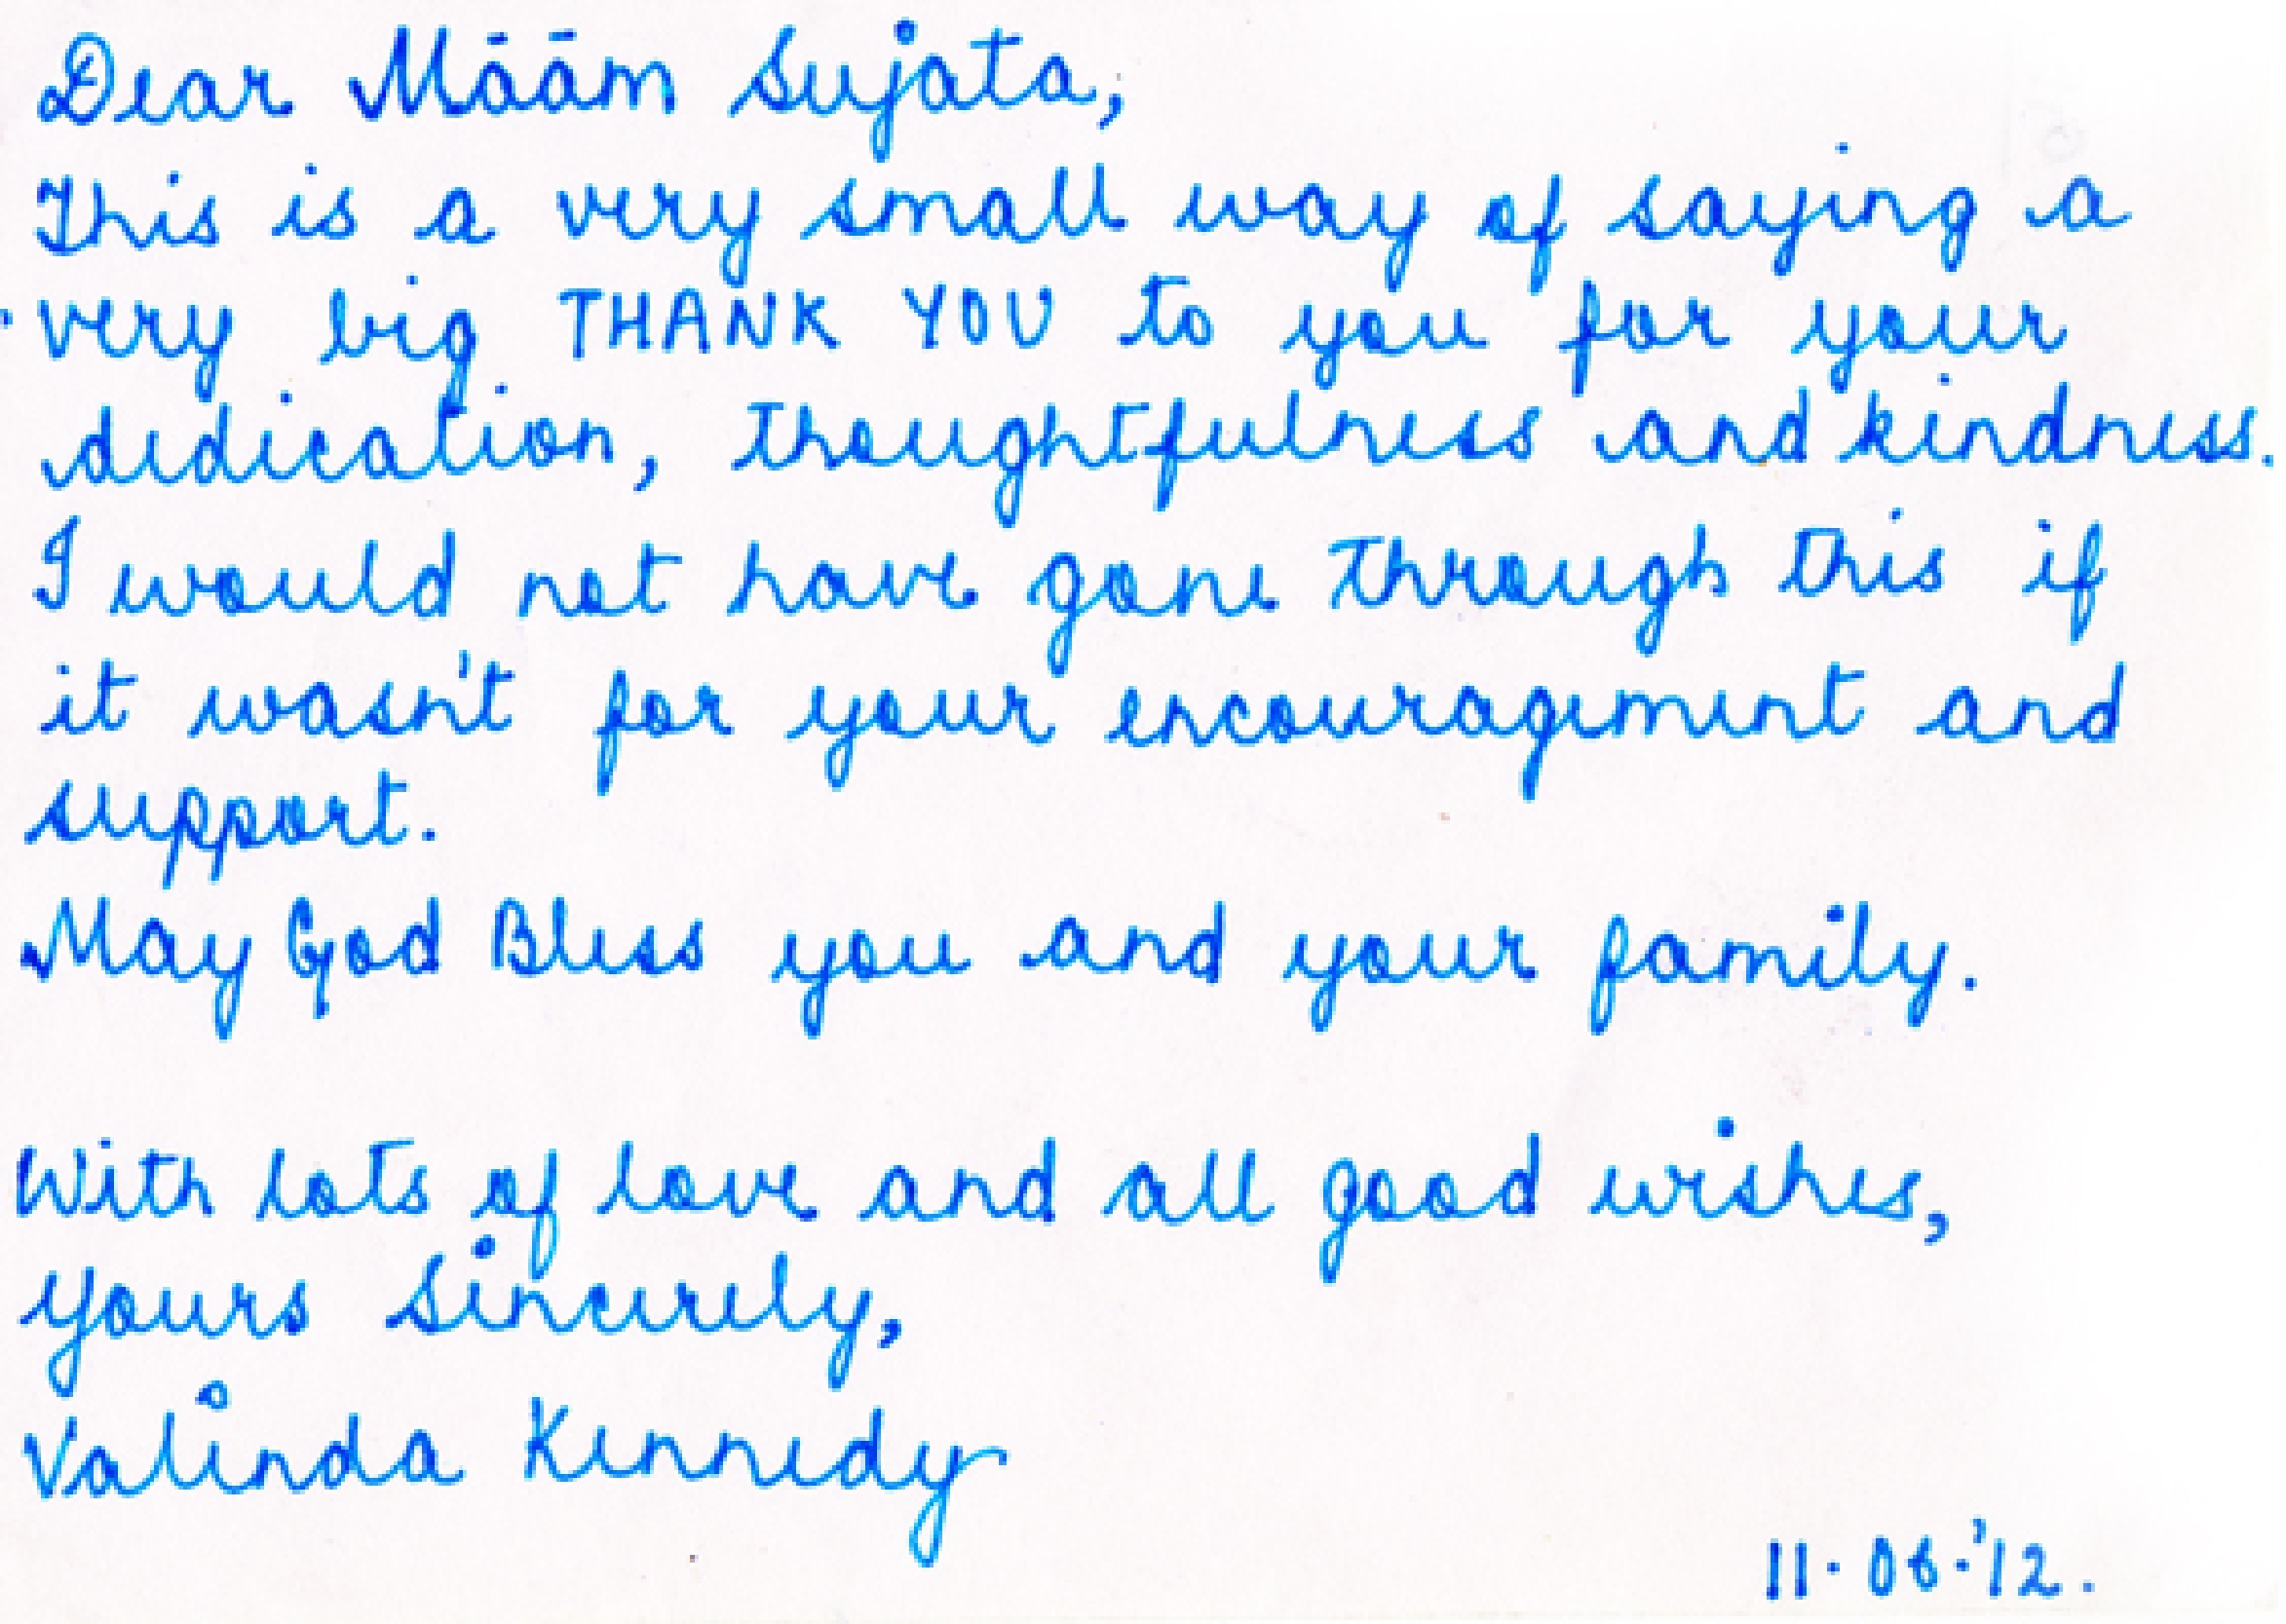 Dear Māām Sujata,
This is a very small way of saying a
very big THANK YOU to you for your
dedication, thoughtfulness and kindness.
I would not have gone through this if
it wasn't for your encouragement and
support.
May God Bless you and your family.
With lots of love and all good wishes,
Yours Sincerely,
Valinda Kennedy
11.06.'12.